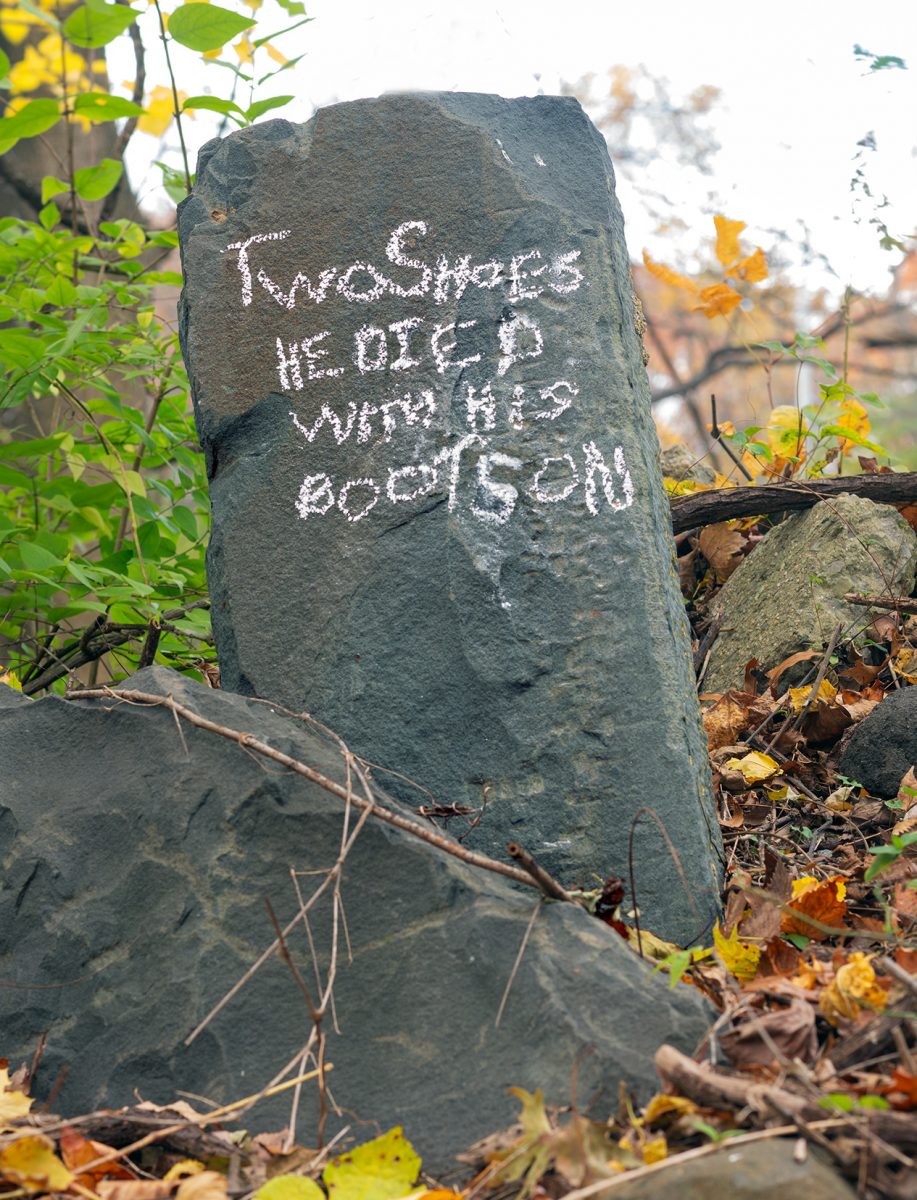 TwoShoes
HE DIED
WITH HIS
BOOTSON